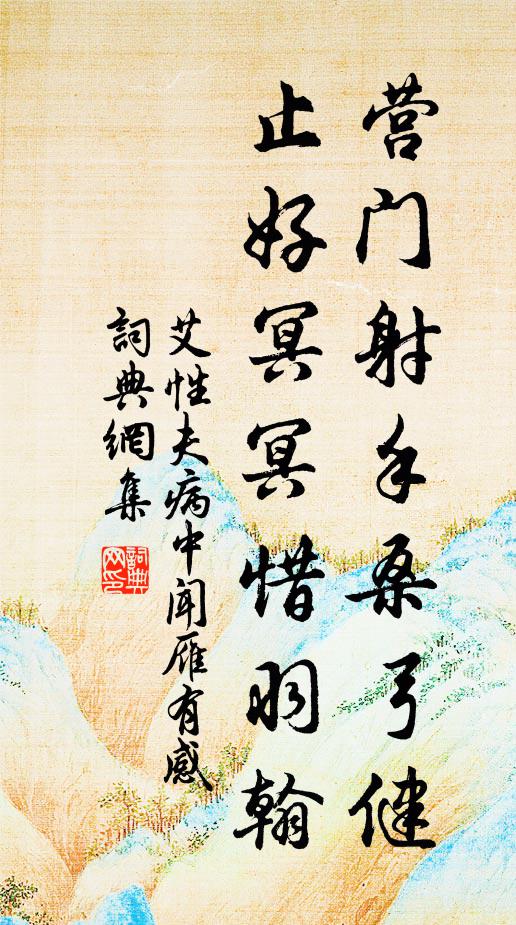 营门射手桑弓健
止好冥冥惜羽翰
艾性夫病中闻雁有感
詞典網集
詞典
网印